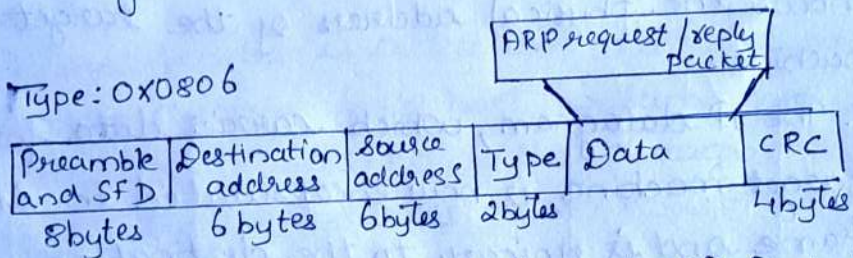 ARP request/reply
packet
Type: 0X0806
Preamble and SFD
Destination address
Source address
Type
Data
CRC
8bytes
6 bytes
6bytes
2bytes
4bytes